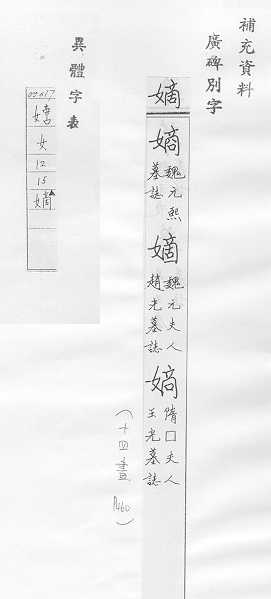 補充資料
廣碑別字
嫡
嫡
魏元熙
墓誌
嫡
魏元夫人
趙光墓誌
隋□夫人
王光墓誌
(十四畫 P460)
異體字表
女
12
15
嫡